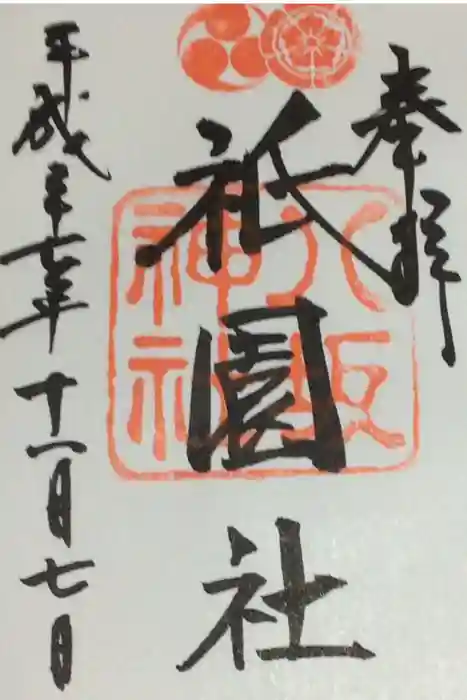 奉拝
祇園社
八坂
神社
平成二十七年十一月七日